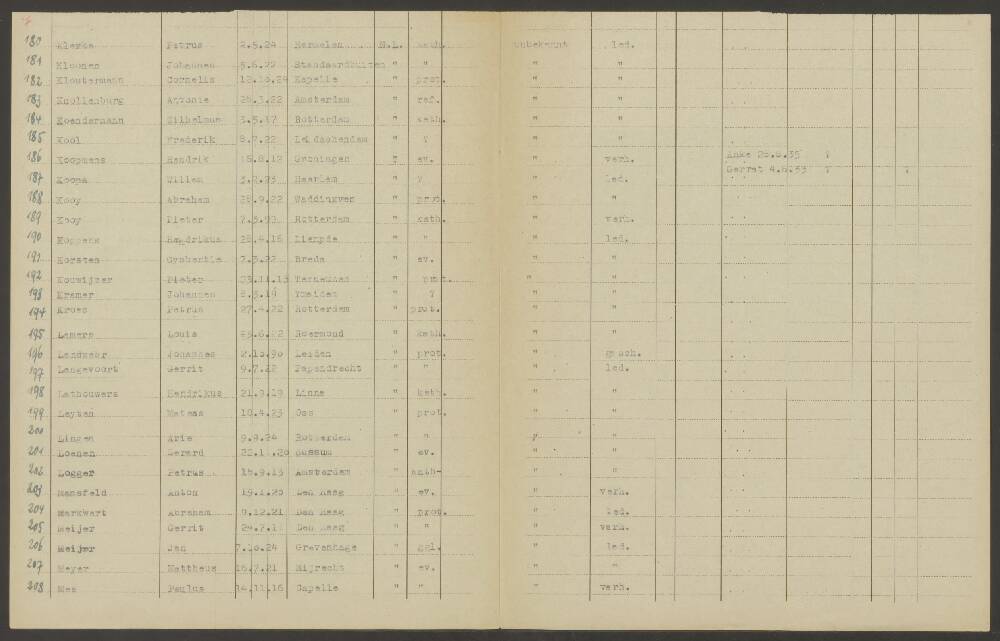 180 Klerks Petrus 2.5.24 Hermelen N.L. kath. unbekannt led.
181 Kloones Johannes 5.6.22 Standaardbuiten " " " "
182 Kloutermann Cornelis 12.10.24 Kapelle " prot. " "
183 Knollenburg 26.3.22 Amsterdam " ref. " "
184 Koendermann Wilhelmus 3.5.17 Rotterdam " kath. " "
185 Kool Frederik 8.7.22 Leidschendam " ? " "
186 Koopmans Hendrik 18.8.12 Groningen ev. " verh. Anke 26.8.35 ?
187 Koops Willem Haarlem " ? " led. Gerret 4.8.33 ? ?
188 Kooy Abraham 28.9.22 Waddinxven " prot. " "
189 Kooy Pieter Rotterdam " kath. " verh.
190 Koppens Hendrikus 28.4.16 Liempde " " " led.
191 Korsten 7.3.22 Breda " ev. " "
192 Kouwijzer Pieter 23.11.13 Terneuzen " prot. " "
193 Kramer Johannes 8.3.19 Ymuiden " ? " "
194 Kroes Petrus 27.4.22 Rotterdam " prot. " "
195 Lamers Louis Roermond " kath. " "
196 Landzaar Johannes 2.10.90 Leiden " prot. " gesch.
197 Langevoort Gerrit 9.7.22 Papendrecht " " " led.
198 Lathouwers Hendrikus 21.9.19 Linne " kath. " "
199 Leyten Mateas 10.4.23 Oss " prot. " "
200 Lingen Arie 9.9.24 Rotterdam " " " "
201 Loenen Gerard 22.11.20 Bussum " ev. " "
202 Logger Petrus 15.9.13 Amsterdam " kath- " "
203 Mansfeld Anton 19.1.20 Den Haag " ev. " verh.
204 Markwart Abraham 9.12.21 Den Haag " prot. " led.
205 Meijer Gerrit 24.7.11 Den Haag " " " verh.
206 Meijer Jan 7.10.24 Gravenhage " " led.
207 Meyer Mattheus 16.7.21 Mijrecht " ev. " "
208 Mes Paulus 14.11.16 Capelle " " " verh.